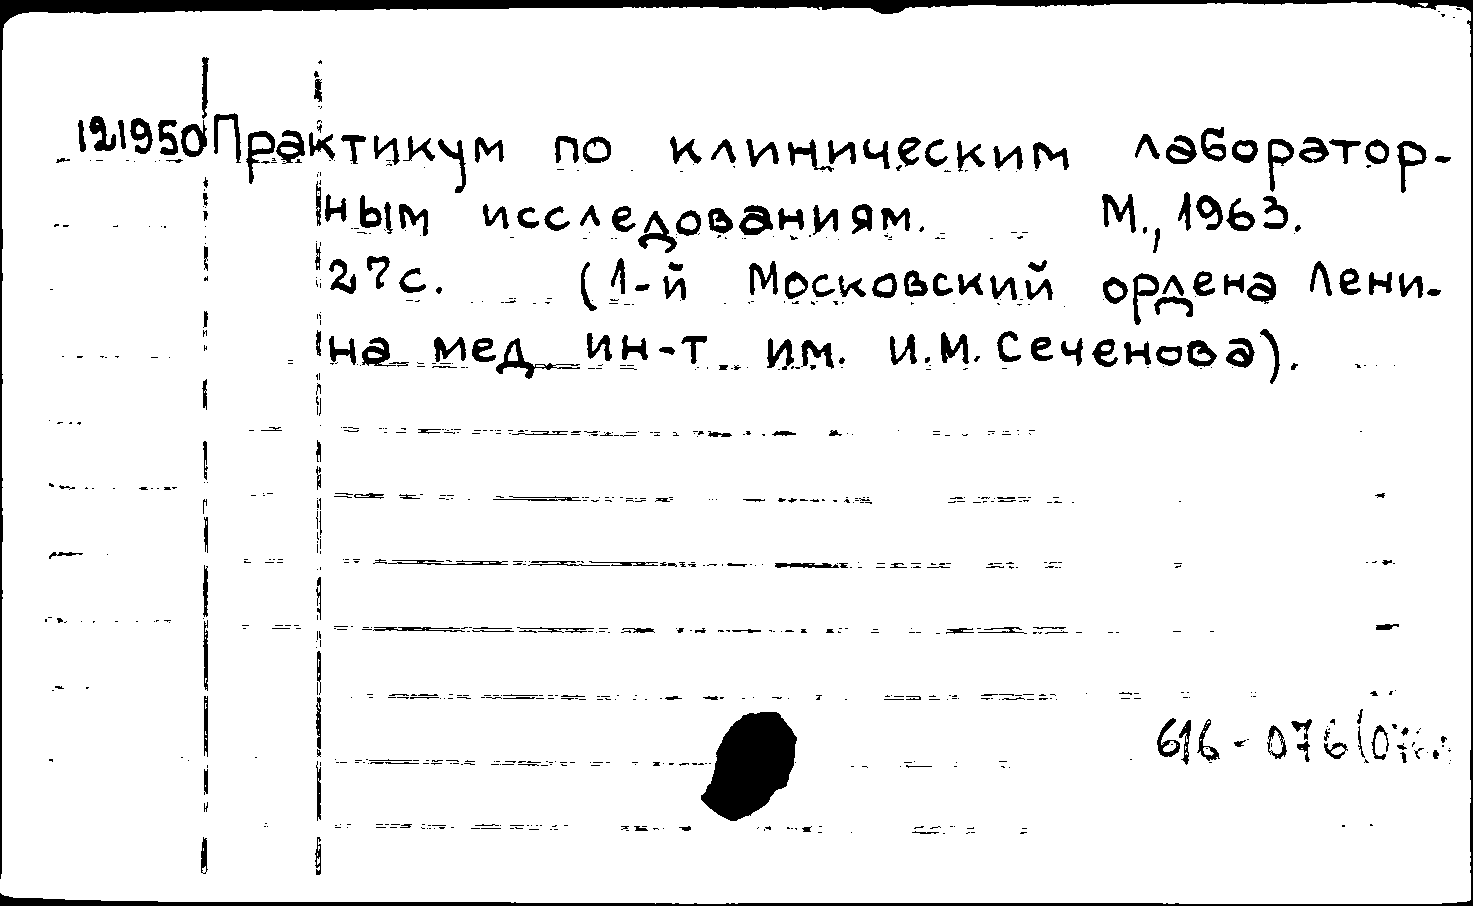 121950 Практикум по клиническим лаборатор-
ным исследованиям. М., 1963.
27с. (1-й Московский ордена Лени-
на мед. ин-т им. И.М. Сеченова).
616-076